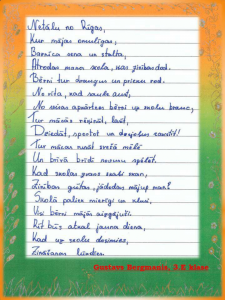 Netālu no Rīgas,
Kur mājas omulīgas,
Barnica sena un stalta,
Atrodas mana skola, kas zināšanas dod.
Bērni tur draugus un prieku rod.
No rīta, kad saule aust,
No visas apkārtnes bērni uz skolu brauc,
Tur mācās rēķināt, lasīt,
Dziedāt, sportot un dejotus
Tur mācās runāt svešā mēlē
Un brīvā brīdī spēlēt.
Kad skolas zvans skan,
Zinības gūtas, jādodas mājup man!
Skolā paliek mierīgi un klusi,
Visi bērni mājās aizgājuši.
Rīt būs atkal jauna diena,
Kad uz skolu dosimies,
Zināšanas
Gustavs Bergmanis, 3.E klase